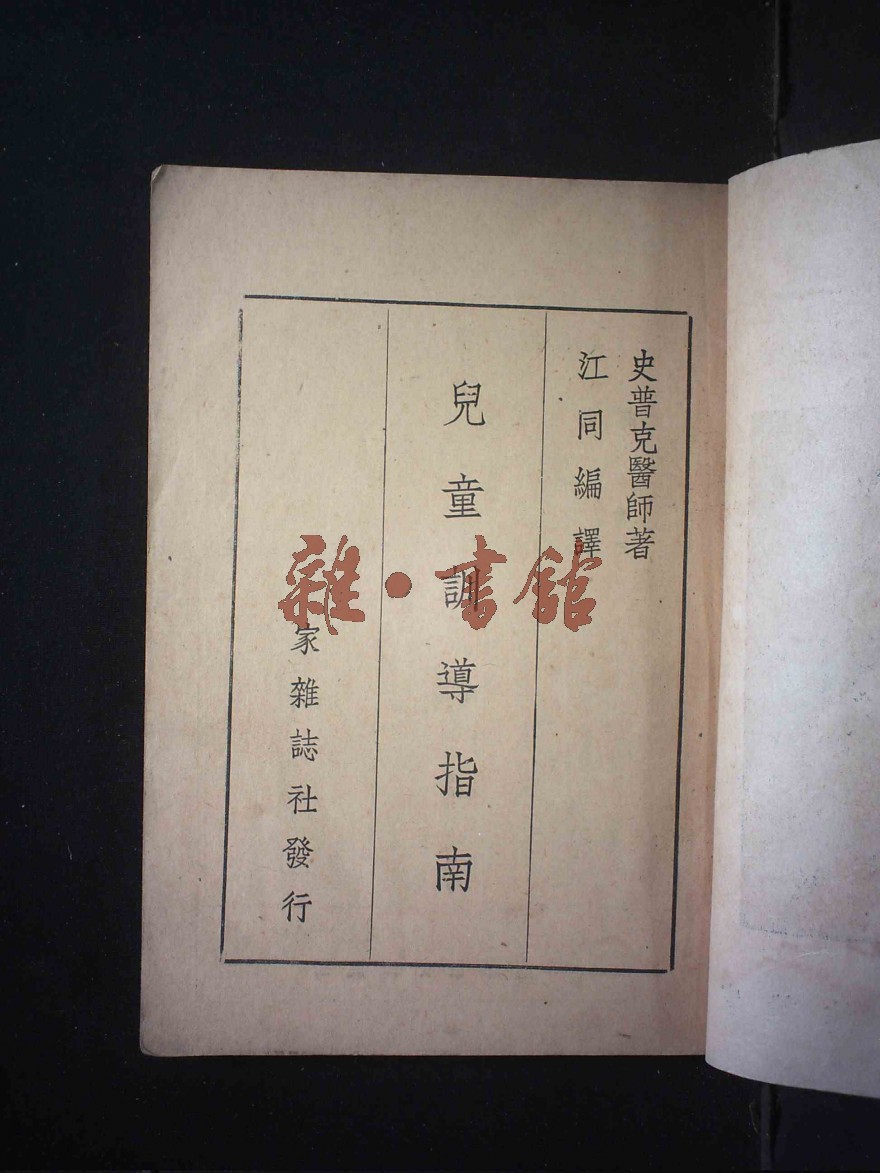 史普克醫師著
江同編譯
兒童訓導指南
家雜誌社發行
雜·書館